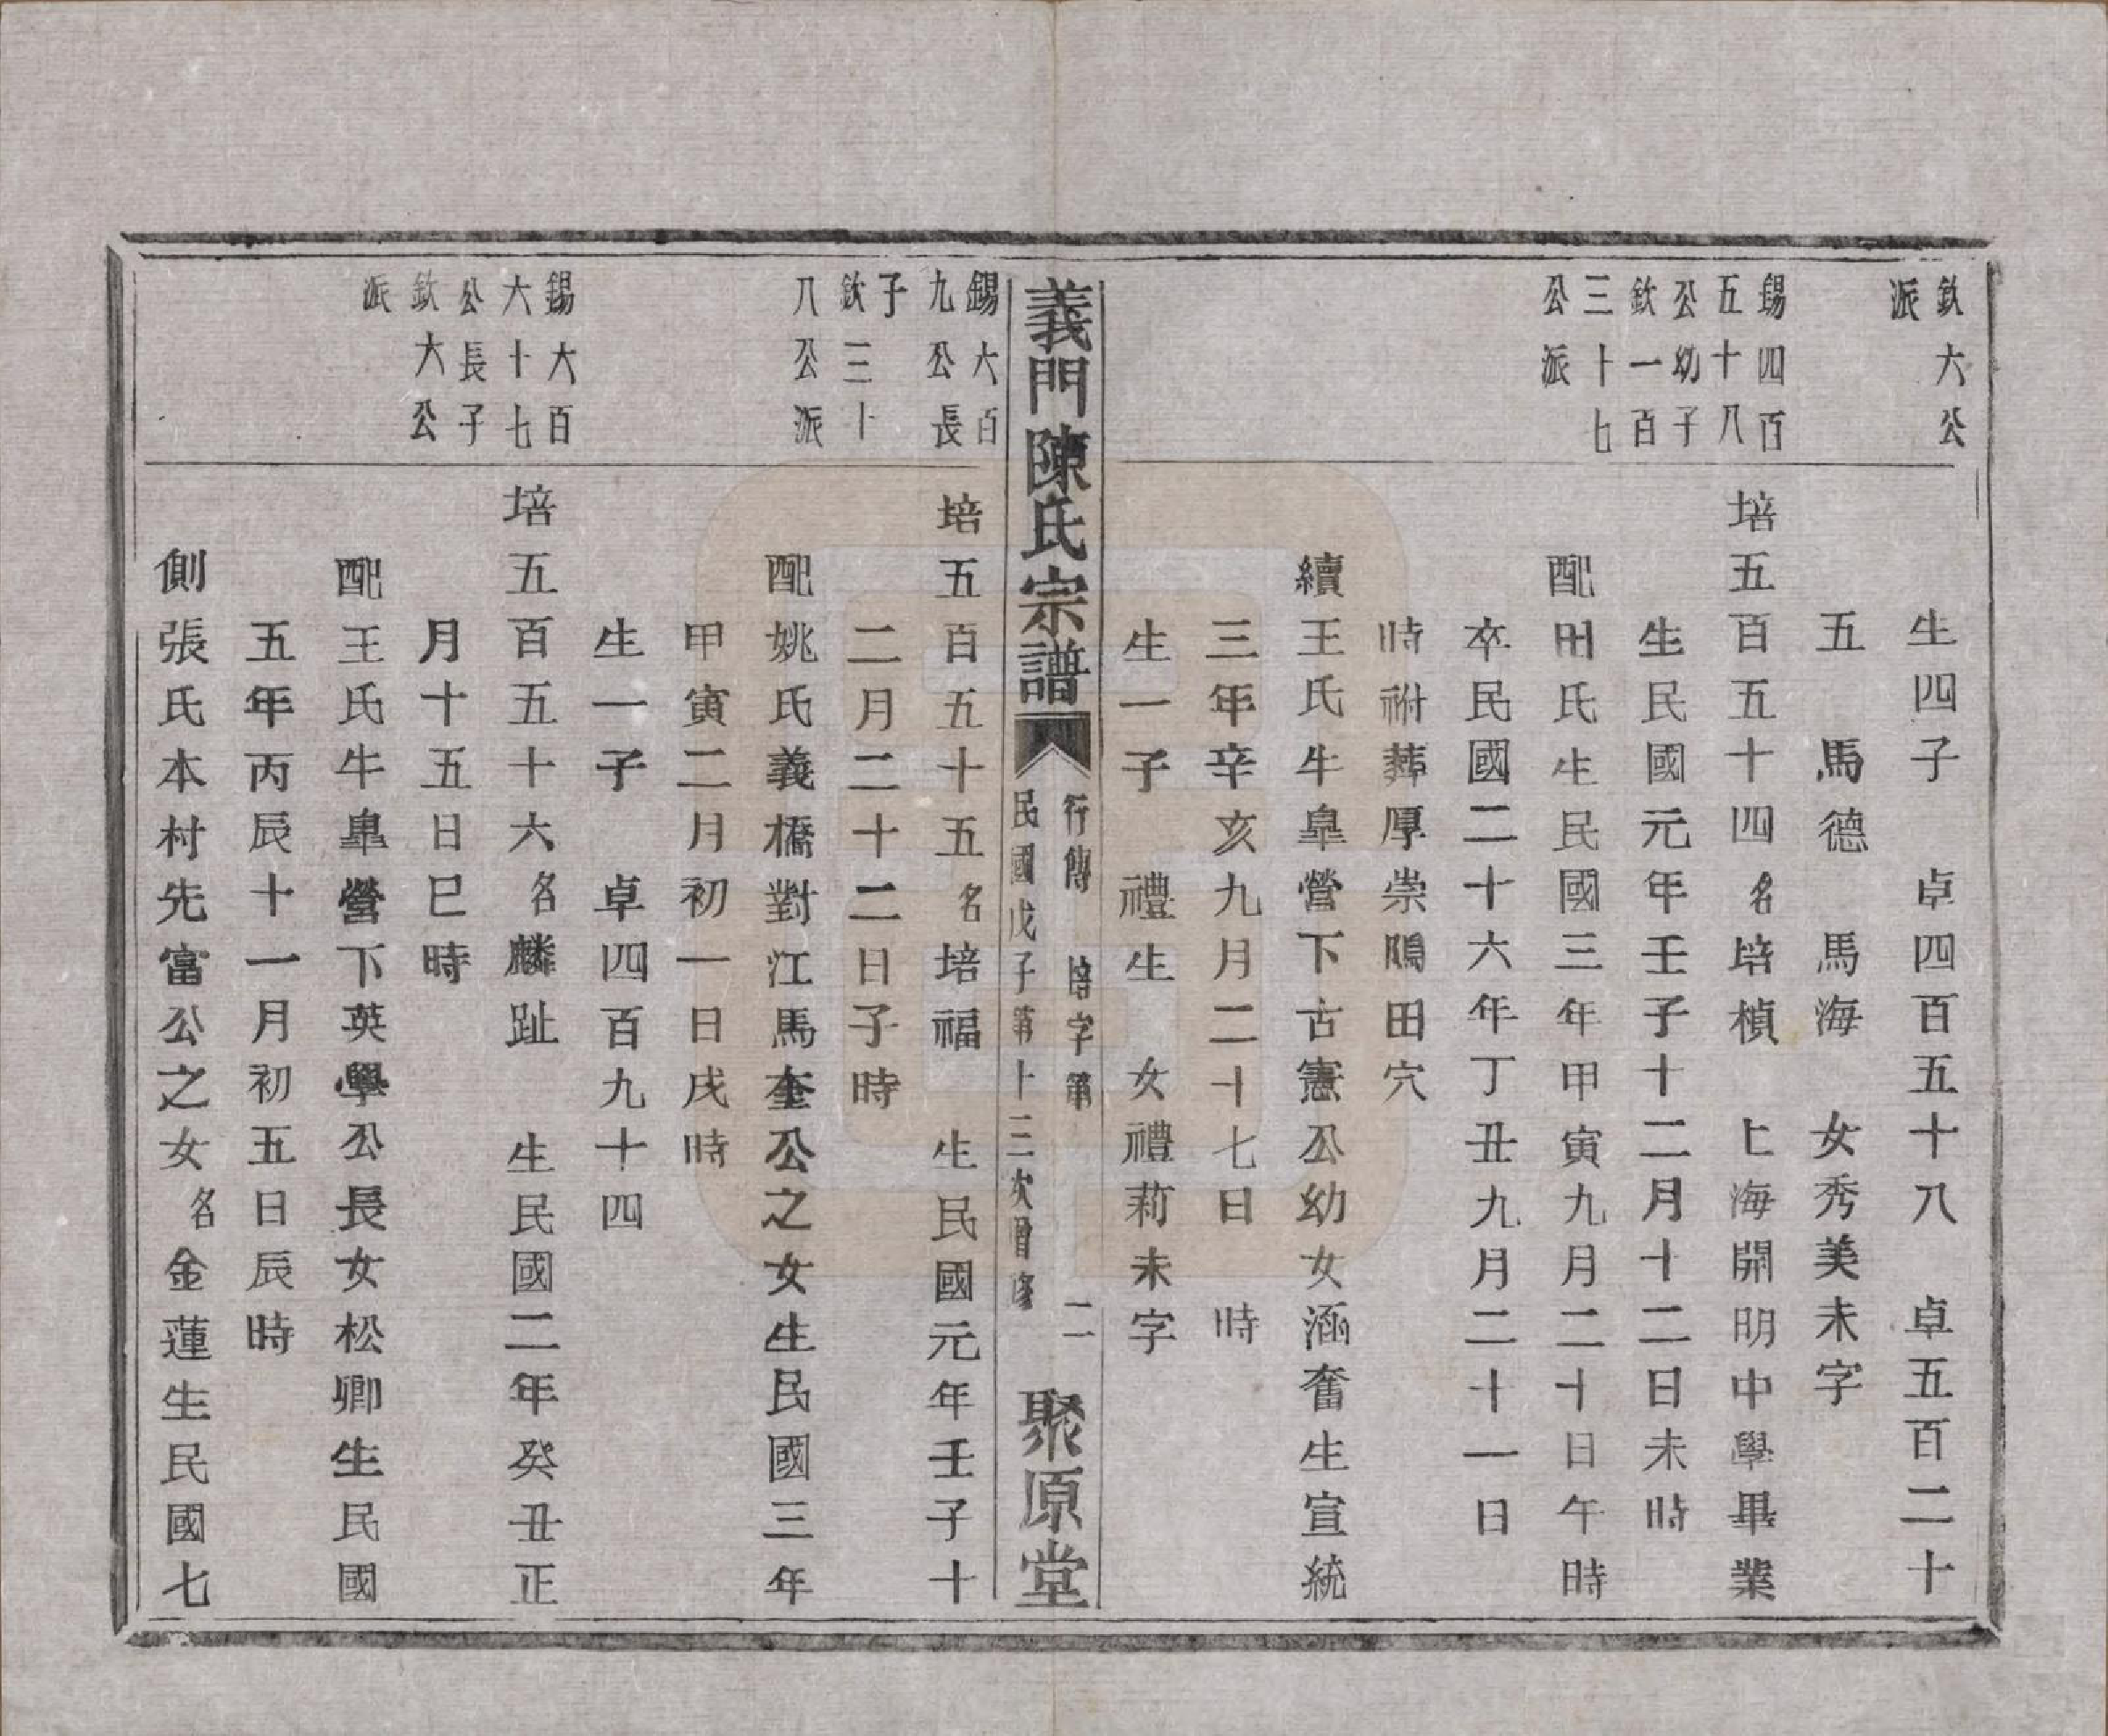 欽大公
派
生四子　卓四百五十八　卓五百二十
五　馬德　馬海　女秀美未字
錫四百
五十八
公幼子
欽一百
三十七
公派
培五百五十四名培楨　上海開明中學畢業
生民國元年壬子十二月十二日未時
配田氏生民國三年甲寅九月二十日午時
卒民國二十六年丁丑九月二十一日
時祔葬厚崇隝田穴
續王氏牛皐營下古憲公幼女涵奮生宣統
三年辛亥九月二十七日　時
生一子　禮生　女禮莉未字
義門陳氏宗譜
行傳　培字第　二
民國戊子第十三次增修
聚原堂
錫大百
九公長
子
欽三十
八公派
培五百五十五名培福　生民國元年壬子十
二月二十二日子時
配姚氏義橋對江馬奎公之女生民國三年
甲寅二月初一日戌時
生一子　卓四百九十四
錫大百
六十七
公長子
欽大公
派
培五百五十六名麟趾　生民國二年癸丑正
月十五日巳時
配王氏牛皐營下英學公長女松卿生民國
五年丙辰十一月初五日辰時
側張氏本村先富公之女名金蓮生民國七